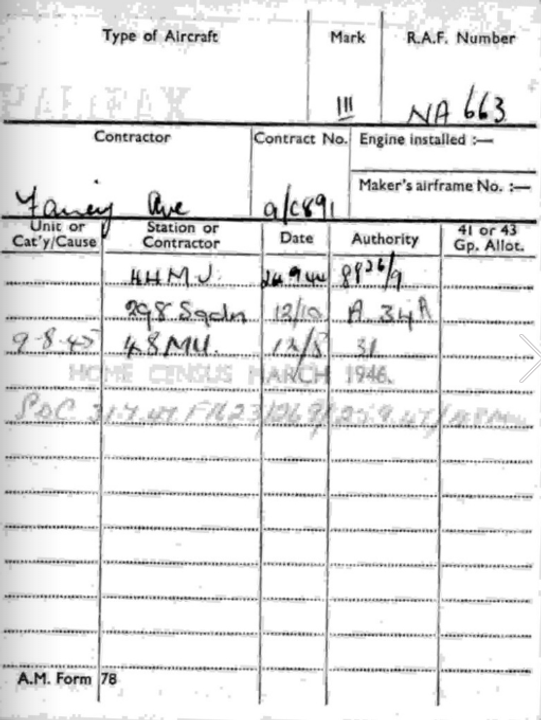 Type of Aircraft Mark R.A.F. Number
HALIFAX III NA 663
Contractor Contract No. Engine installed :—
Fairey Ave a/c891
Maker's airframe No. :—
Unit or Cat'y/Cause Station or Contractor Date Authority 41 or 43 Gp. Allot.
44 MU. 24 9 44 8926/9
298 Sqdn 12/10 A 34A
9-8-45 48 MU. 12/8 31
HOME CENSUS MARCH 1946.
A.M. Form 78